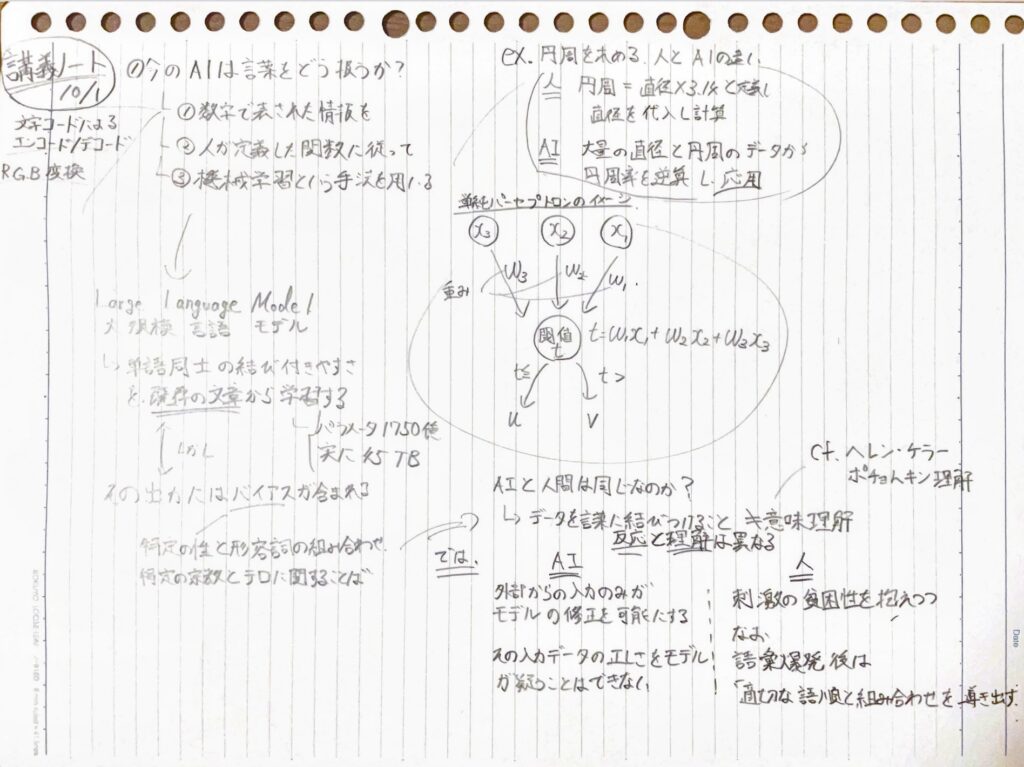 講義ノート
10/1
文字コードによる
エンコード/デコード
RGB変換
①今のAIは言葉をどう扱うか?
①数字で表された情報を
②人が定義した関数に従って
③機械学習という手法を用いる
Large Language Model
大規模 言語 モデル
↳単語同士の結び付きやすさ
を既存の文章から学習する
パラメータ1750億
実に45TB
しかし
その出力にはバイアスが含まれる
特定の性と形容詞の組み合わせ
特定の宗教とテロに関することば
ex. 円周を求める、人とAIの違い
人 円周=直径×3.14と定義し
直径を代入し計算
AI 大量の直径と円周のデータから
円周率を逆算し、応用
単純パーセプトロンのイメージ
x3 x2 x1
重み W3 W2 W1
閾値
t
t=W1x1+W2x2+W3x3
t≦ t>
u v
cf. ヘレン・ケラー
ポチョムキン理解
AIと人間は同じなのか?
↳データを言葉に結びつけること ≠意味理解
反応と理解は異なる
では、
AI
外部からの入力のみが
モデルの修正を可能にする
その入力データの正しさをモデル
が疑うことはできない
人
刺激の貧困性を抱えつつ
なお
語彙爆発後は
「適切な語順と組み合わせを導き出す。
Date